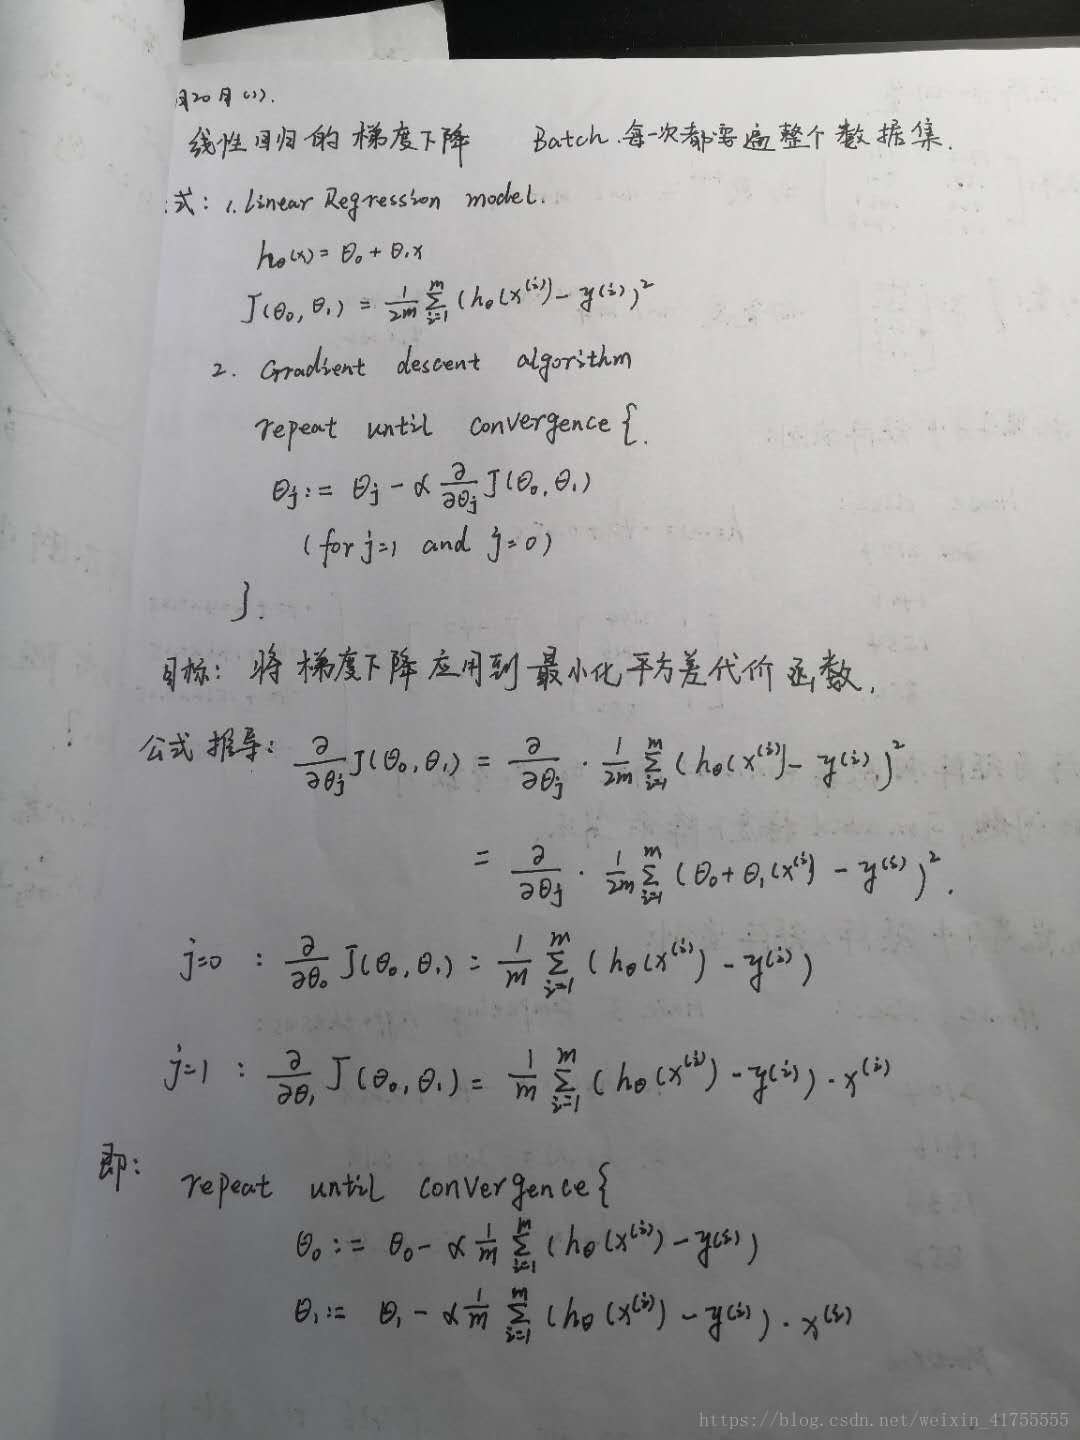 月20日(1).
线性回归的梯度下降 Batch.每一次都要遍整个数据集.
式: 1. Linear Regression model.
hθ(x) = θ₀ + θ₁x
J(θ₀, θ₁) = 1/2m ∑ᵢ₌₁ᵐ (hθ(x⁽ⁱ⁾) − y⁽ⁱ⁾)²
2. Gradient descent algorithm
repeat until convergence {.
θj := θj − α ∂/∂θj J(θ₀, θ₁)
(for j=1 and j=0)
}.
目标: 将梯度下降应用到最小化平方差代价函数.
公式推导: ∂/∂θj J(θ₀, θ₁) = ∂/∂θj · 1/2m ∑ᵢ₌₁ᵐ (hθ(x⁽ⁱ⁾) − y⁽ⁱ⁾)²
= ∂/∂θj · 1/2m ∑ᵢ₌₁ᵐ (θ₀ + θ₁(x⁽ⁱ⁾) − y⁽ⁱ⁾)².
j=0 : ∂/∂θ₀ J(θ₀, θ₁) = 1/m ∑ᵢ₌₁ᵐ (hθ(x⁽ⁱ⁾) − y⁽ⁱ⁾)
j=1 : ∂/∂θ₁ J(θ₀, θ₁) = 1/m ∑ᵢ₌₁ᵐ (hθ(x⁽ⁱ⁾) − y⁽ⁱ⁾) · x⁽ⁱ⁾
即:
repeat until convergence {
θ₀ := θ₀ − α 1/m ∑ᵢ₌₁ᵐ (hθ(x⁽ⁱ⁾) − y⁽ⁱ⁾)
θ₁ := θ₁ − α 1/m ∑ᵢ₌₁ᵐ (hθ(x⁽ⁱ⁾) − y⁽ⁱ⁾) · x⁽ⁱ⁾
https://blog.csdn.net/weixin_41755555